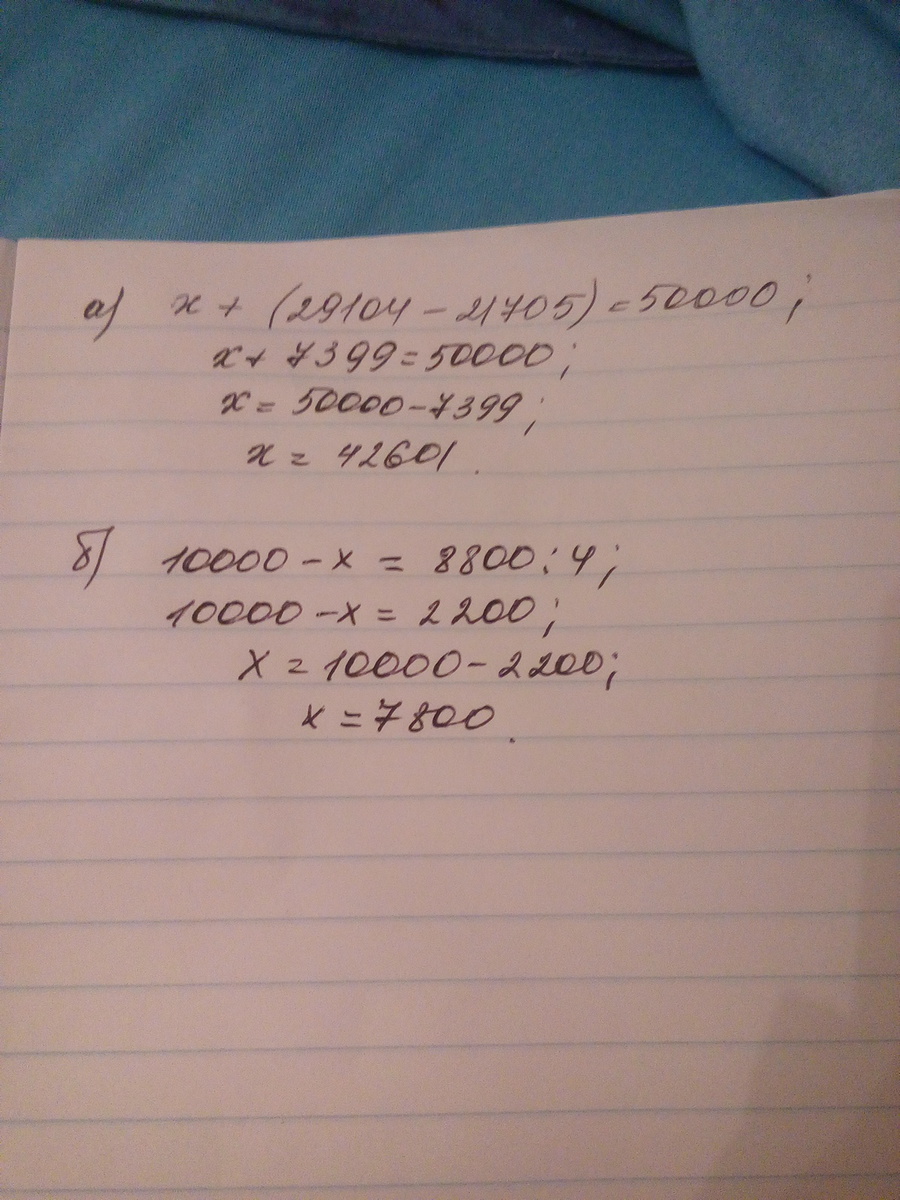 а) x + (29104 - 21705) = 50000;
x + 7399 = 50000;
x = 50000 - 7399;
x = 42601.
б) 10000 - x = 8800 : 4;
10000 - x = 2200;
x = 10000 - 2200;
x = 7800.